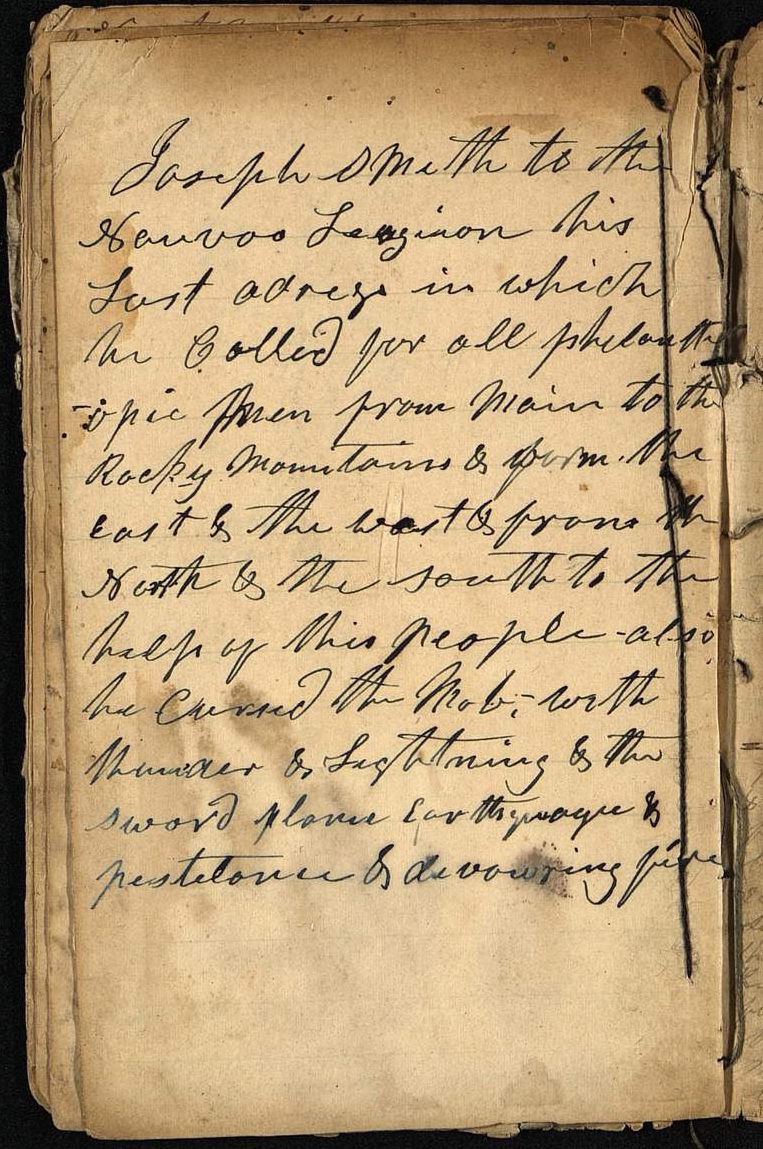 Joseph Smith to the
Nauvoo Leagion his
Last adress in which
he Called for all phelanth
-ropic men from Main to the
Rocky Mountains & form the
East & the west & from the
North & the south to the
help of this people - also
he Cursed the Mob, - with
thunder & Lightning & the
sword plame Earthquaque &
pestelance & devouring fire